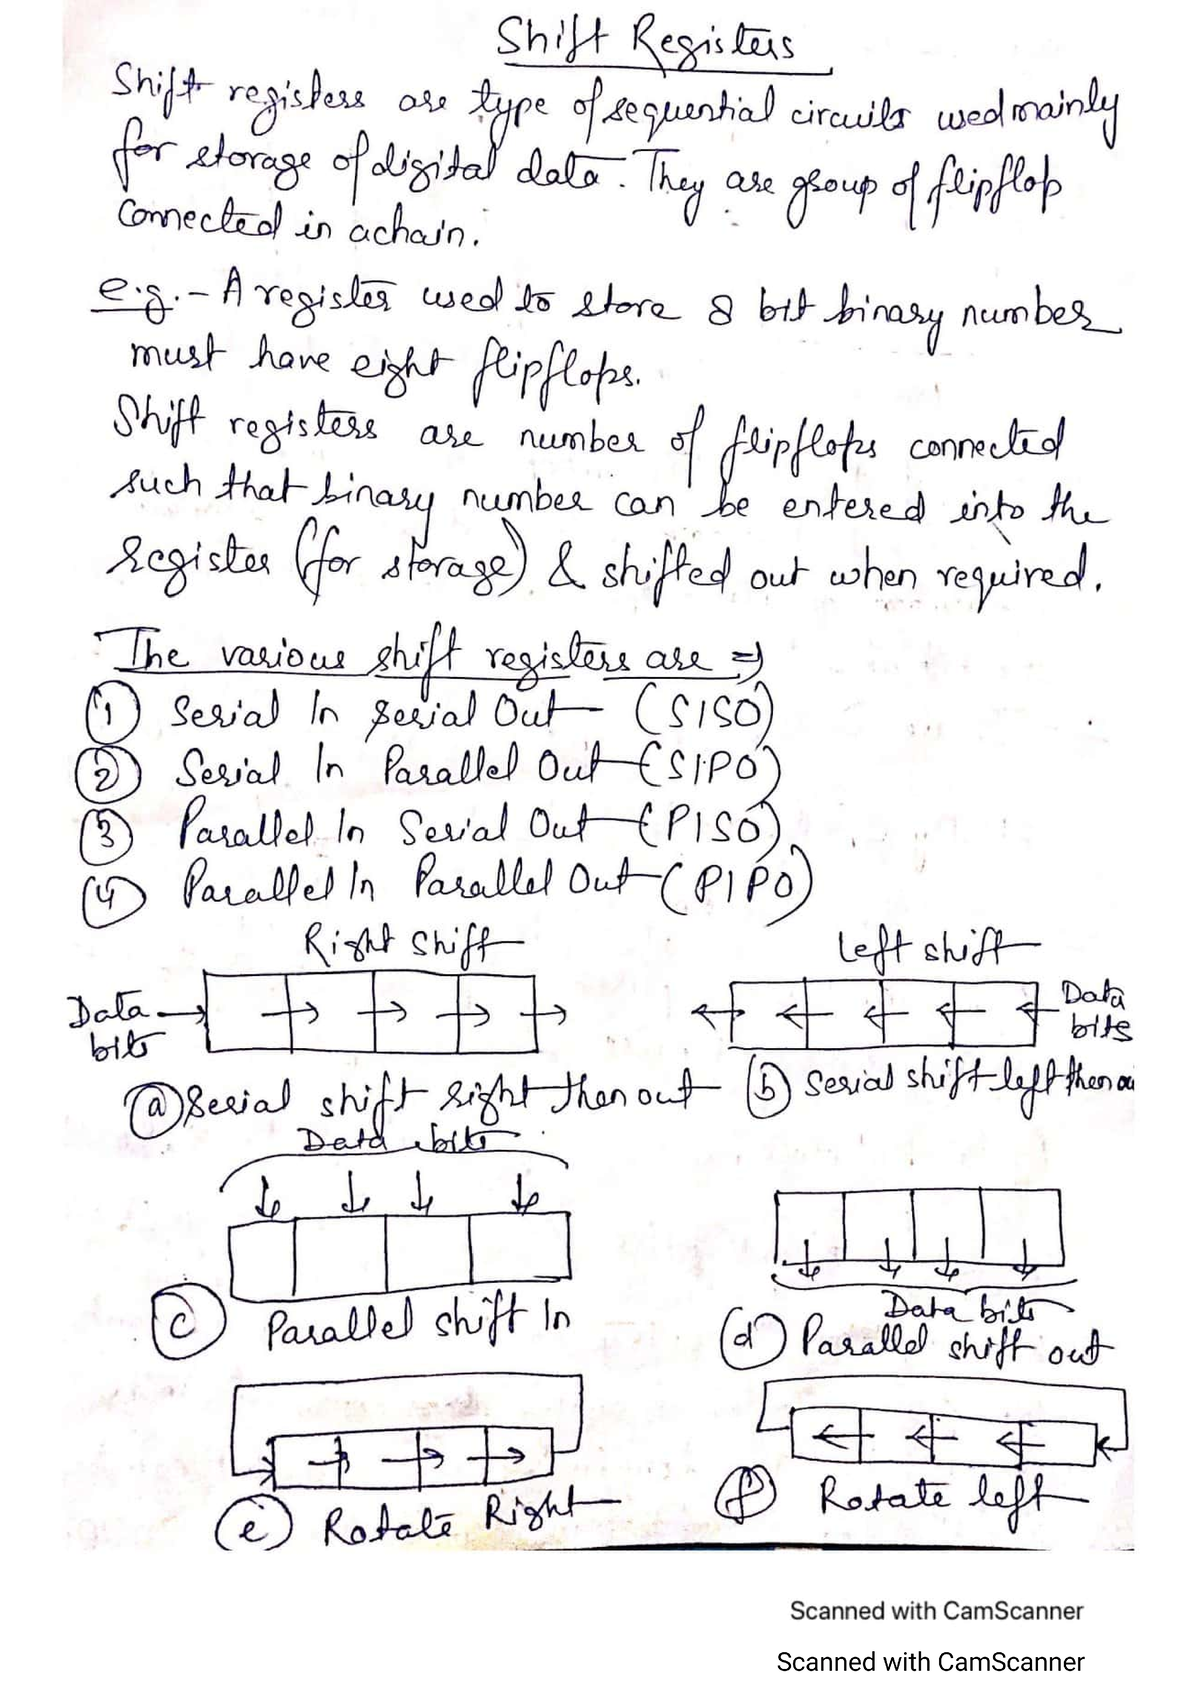 Shift Registers
Shift registers are type of sequential circuits used mainly
for storage of digital data. They are group of flipflop
connected in a chain.
e.g. - A register used to store 8 bit binary number
must have eight flipflops.
Shift registers are number of flipflops connected
such that binary number can be entered into the
register (for storage) & shifted out when required.
The various shift registers are ⇒
① Serial In Serial Out (SISO)
② Serial In Parallel Out (SIPO)
③ Parallel In Serial Out (PISO)
④ Parallel In Parallel Out (PIPO)
Right shift
Left shift
Data
bits
Data
bits
ⓐ Serial shift right then out
ⓑ Serial shift left then ou
Data bits
ⓒ Parallel shift In
Data bits
ⓓ Parallel shift out
ⓔ Rotate Right
ⓕ Rotate left
Scanned with CamScanner
Scanned with CamScanner